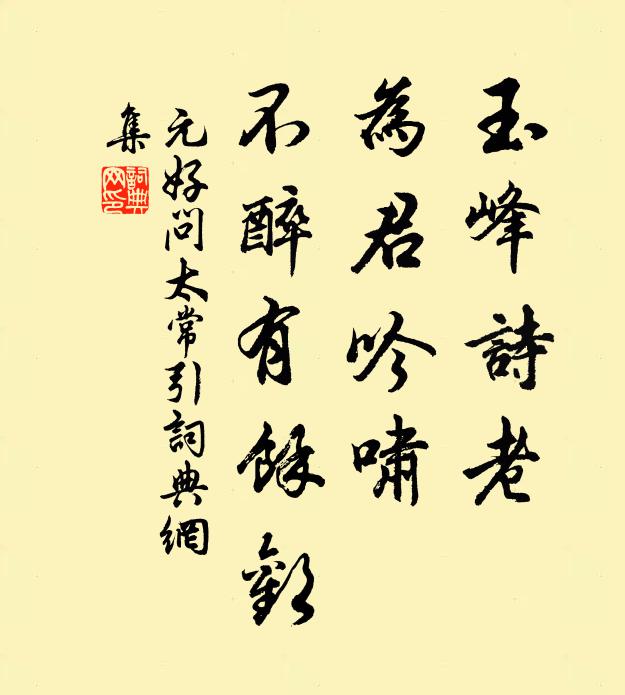 玉峰詩老
為君吟嘯
不醉有餘歡
元好问太常引詞典網
集
詞典网印